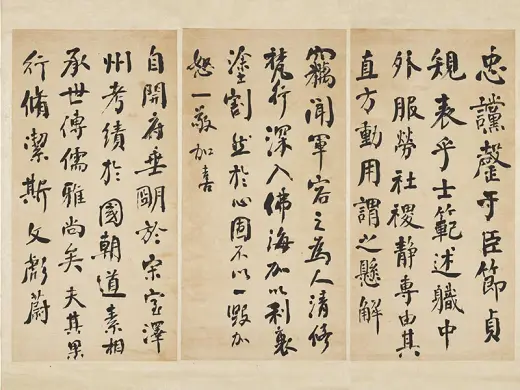 忠讜罄于臣節貞
規表乎士範述職中
外服勞社稷靜專由其
直方動用謂之懸解
竊聞軍容之為人清修
梵行深入佛海加以利衰
塗割然於心固不以一毀加
怒一敬加喜
自開府垂明於宋室澤
州考績於國朝道素相
承世傳儒雅尚矣夫其果
行脩潔斯文彪蔚